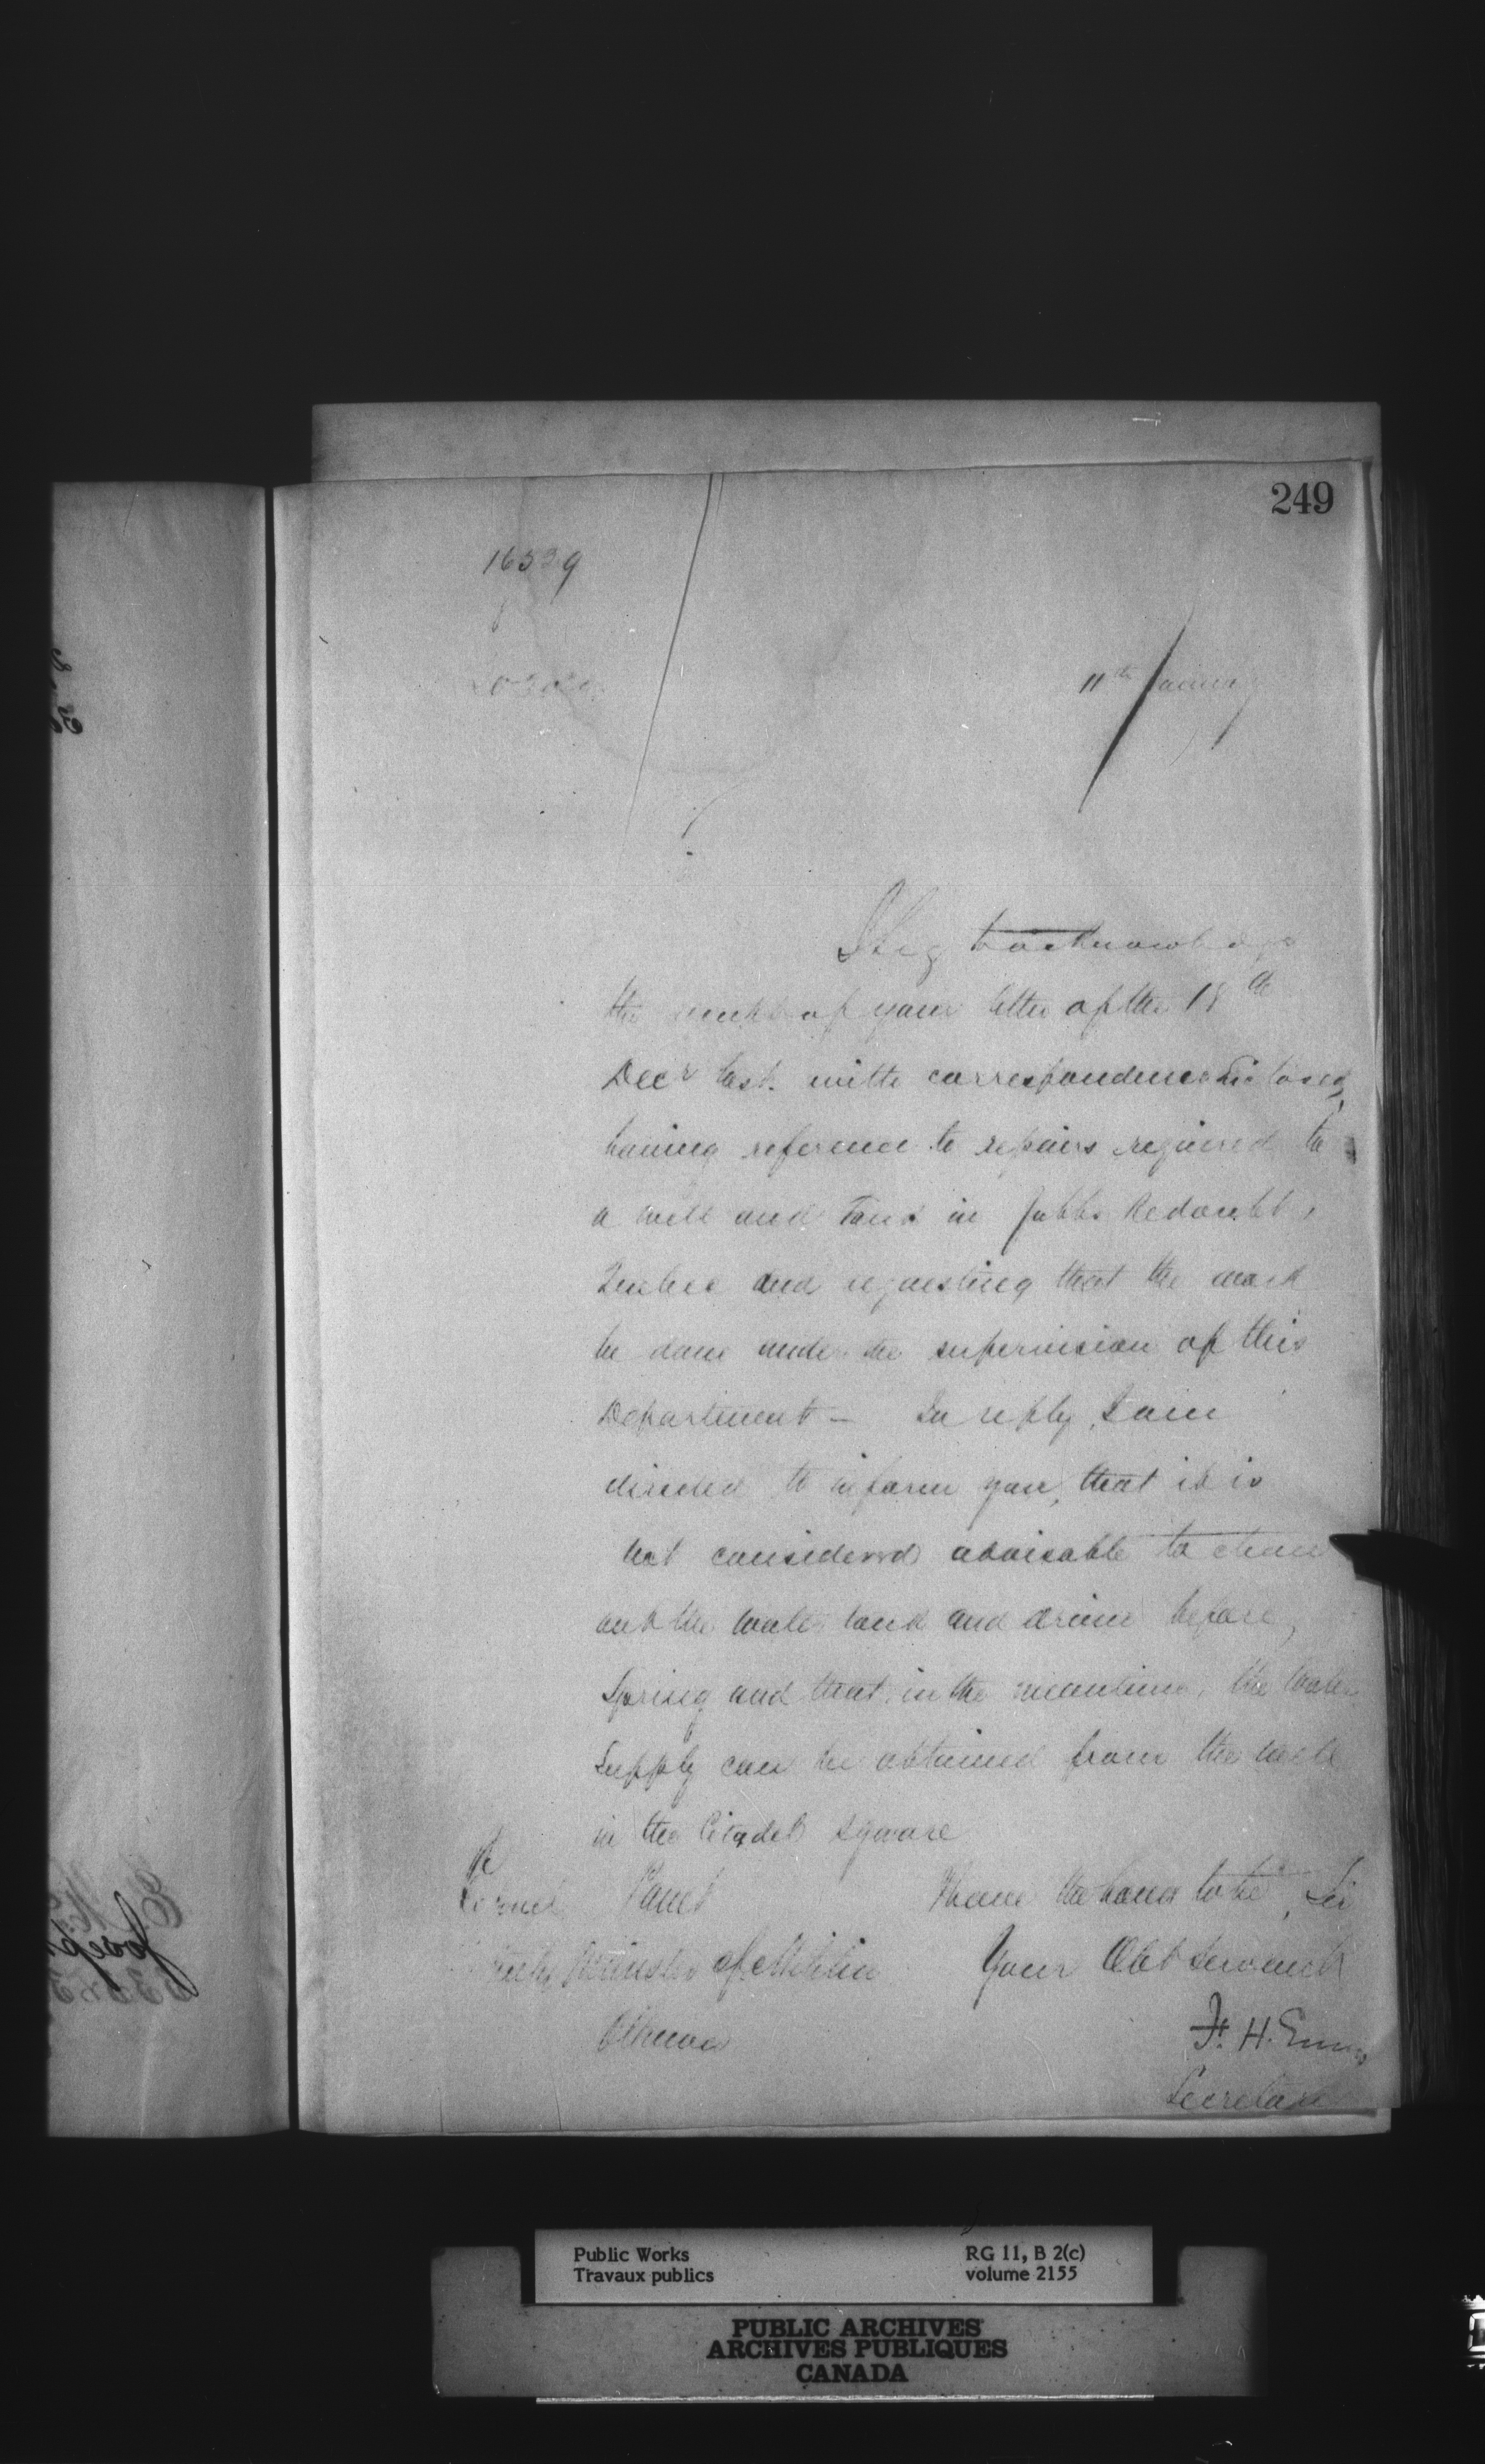 249
16539
11th January
I beg to acknowledge
the receipt of your letter of the 18th
Decr last with correspondence enclosed,
having reference to repairs required to
a well and Tank in Jebb's Redoubt,
Quebec and requesting that the work
be done under the supervision of this
Department – In reply, I am
directed to inform you, that it is
not considered advisable to clean
out the water tank and drain before
Spring and that, in the meantime, the water
supply can be obtained from the well
in the Citadel Square
I have the honor to be, Sir
Your Obt Servant
F. H. Ennis
Secretary
Colonel Panet
Deputy Minister of Militia
Ottawa
Public Works
Travaux publics
RG 11, B 2(c)
volume 2155
PUBLIC ARCHIVES
ARCHIVES PUBLIQUES
CANADA